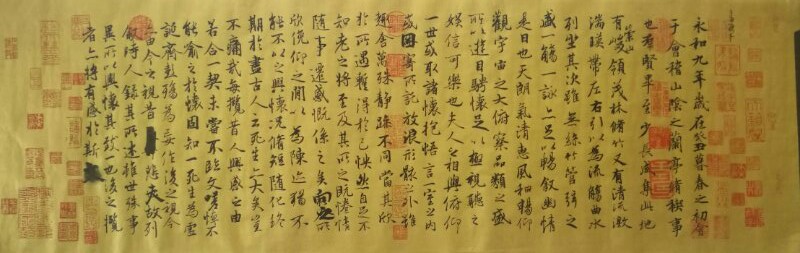 永和九年歲在癸丑暮春之初會
于會稽山陰之蘭亭脩稧事
也群賢畢至少長咸集此地
有崇山峻領茂林脩竹又有清流激
湍暎帶左右引以為流觴曲水
列坐其次雖無絲竹管弦之
盛一觴一詠亦足以暢敘幽情
是日也天朗氣清惠風和暢仰
觀宇宙之大俯察品類之盛
所以遊目騁懷足以極視聽之
娛信可樂也夫人之相與俯仰
一世或取諸懷抱悟言一室之內
或因寄所託放浪形骸之外雖
趣舍萬殊靜躁不同當其欣
於所遇暫得於己怏然自足不
知老之將至及其所之既惓情
隨事遷感慨係之矣向之所
欣俛仰之閒以為陳迹猶不
能不以之興懷況脩短隨化終
期於盡古人云死生亦大矣豈
不痛哉每攬昔人興感之由
若合一契未嘗不臨文嗟悼不
能喻之於懷固知一死生為虛
誕齊彭殤為妄作後之視今
亦由今之視昔悲夫故列
敘時人錄其所述雖世殊事
異所以興懷其致一也後之攬
者亦將有感於斯